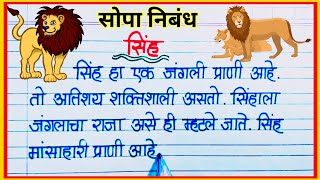 सोपा निबंध
सिंह
सिंह हा एक जंगली प्राणी आहे.
तो अतिशय शक्तिशाली असतो. सिंहाला
जंगलाचा राजा असे ही म्हटले जाते. सिंह
मांसाहारी प्राणी आहे.